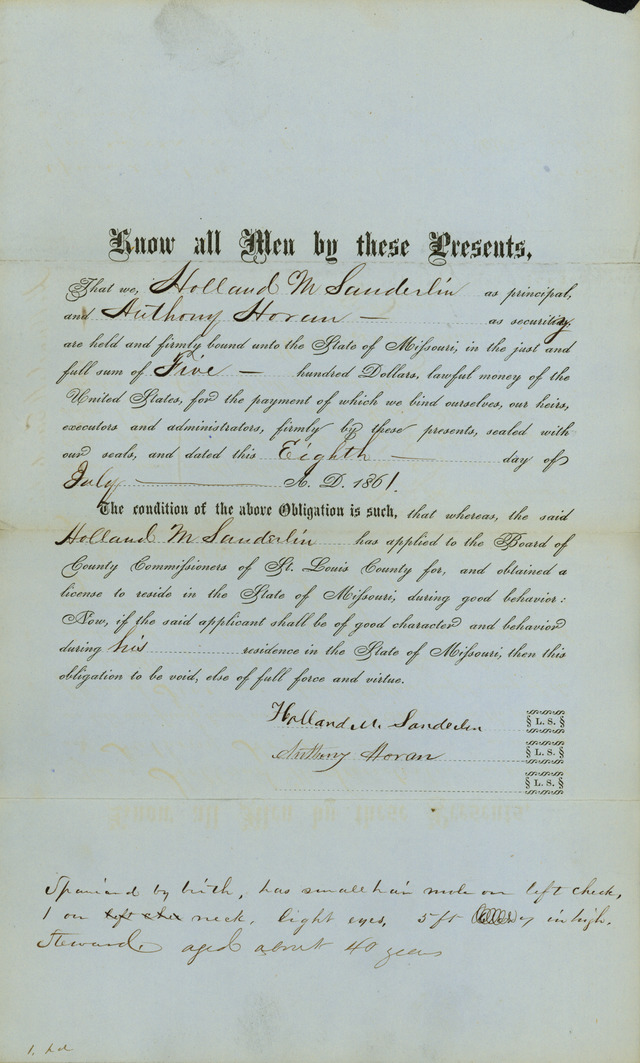 Know all Men by these Presents,
That we, Holland M Sanderlin as principal,
and Anthony Horan — as security
are held and firmly bound unto the State of Missouri, in the just and
full sum of Five — hundred Dollars, lawful money of the
United States, for the payment of which we bind ourselves, our heirs,
executors and administrators, firmly by these presents, sealed with
our seals, and dated this Eighth — day of
July — A. D. 1861.
The condition of the above Obligation is such, that whereas, the said
Holland M Sanderlin has applied to the Board of
County Commissioners of St. Louis County for, and obtained a
license to reside in the State of Missouri, during good behavior:
Now, if the said applicant shall be of good character and behavior
during his residence in the State of Missouri, then this
obligation to be void, else of full force and virtue.
Holland M. Sanderlin L. S.
Anthony Horan L. S.
L. S.
Spaniard by birth, has small hair mole on left cheek,
1 on neck, light eyes, 5 ft 7 in high.
Steward aged about 40 years